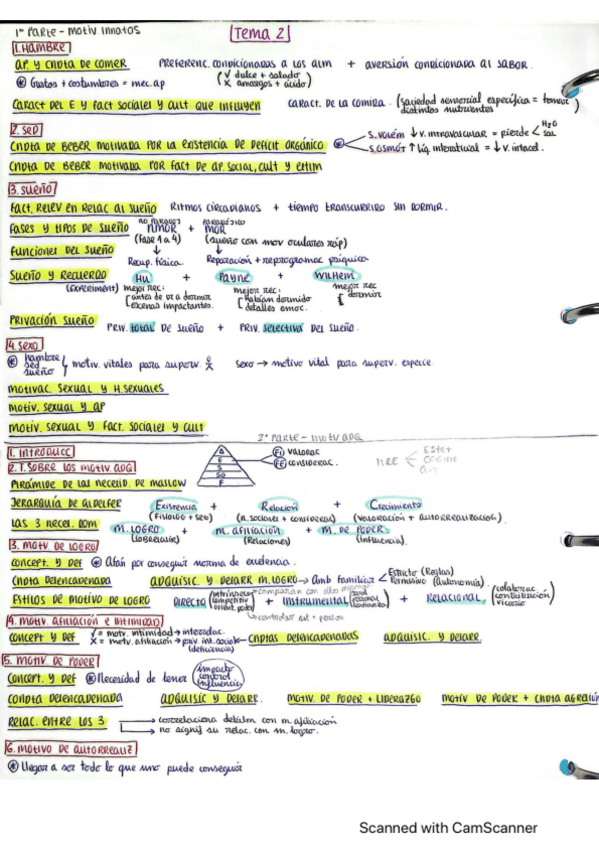 1ª PARTE - MOTIV INNATOS
Tema 2
1. HAMBRE
AP. Y CNDTA DE COMER PREFERENC. CONDICIONADAS A LOS ALIM + AVERSIÓN CONDICIONADA AL SABOR.
* Gustos + costumbres = mec. ap (✓ dulce + salado
X amargos + ácido)
CARACT DEL E Y FACT SOCIALES Y CULT QUE INFLUYEN CARACT. DE LA COMIDA. (saciedad sensorial específica = tomar
distintos nutrientes)
2. SED
CNDTA DE BEBER MOTIVADA POR LA EXISTENCIA DE DÉFICIT ORGÁNICO * S. VOLÉM ↓ v. intravascular = pierde < H2O
sal
S. OSMÓT ↑ líq. intersticial = ↓ v. intracel.
CNDTA DE BEBER MOTIVADA POR FACT DE AP. SOCIAL, CULT Y ESTIM
3. SUEÑO
FACT. RELEV EN RELAC AL SUEÑO RITMOS CIRCADIANOS + TIEMPO TRANSCURRIDO SIN DORMIR.
FASES Y TIPOS DE SUEÑO NMOR + MOR
(fase 1 a 4) (sueño con mov oculares ráp)
FUNCIONES DEL SUEÑO Recup. física. Reparación + reprogramac psíquica
SUEÑO Y RECUERDO HU + PAYNE + WILHEM
(EXPERIMENT) mejor rec: mejor rec: mejor rec
antes de ir a dormir habían dormido dormir
escenas impactantes. detalles emoc.
PRIVACIÓN SUEÑO PRIV. TOTAL DE SUEÑO + PRIV. SELECTIVA DEL SUEÑO.
4. SEXO
* hambre
sed
sueño motiv. vitales para superv. sexo → motivo vital para superv. especie.
MOTIVAC. SEXUAL Y H. SEXUALES
MOTIV. SEXUAL Y AP
MOTIV. SEXUAL Y FACT. SOCIALES Y CULT
2ª PARTE - MOTV ADQ
1. INTRODUCC
VALORAC
CONSIDERAC.
2. T. SOBRE LOS MOTIV ADQ
PIRÁMIDE DE LAS NECESID. DE MASLOW
JERARQUÍA DE ALDELFER Existencia + Relación + Crecimiento
(FISIOLÓG + SEG) (R. sociales + consideras) (valoración + autorrealización)
LAS 3 NECES. DOM M. LOGRO + M. AFILIACIÓN + M. DE PODER
(sobresalir) (Relaciones) (Influencia).
3. MOTV DE LOGRO
CONCEPT. Y DEF * Afán por conseguir norma de excelencia.
CNDTA DESENCADENADA ADQUISIC. Y DESARR M. LOGRO → Amb familiar < Estricto (Reglas)
Permisivo (Autonomía).
ESTILOS DE MOTIVO DE LOGRO DIRECTO + INSTRUMENTAL + RELACIONAL
4. MOTIV AFILIACIÓN E INTIMIDAD
CONCEPT Y DEF ✓ = motv. intimidad → interrelac.
X = motv. afiliación → priv int. sociales
(deficiencia)
CNDTAS DESENCADENADAS ADQUISIC. Y DESARR.
5. MOTIV DE PODER
CONCEPT. Y DEF * Necesidad de tener impacto
control
influencia
CONDTA DESENCADENADA ADQUISIC Y DESARR. MOTIV DE PODER + LIDERAZGO MOTIV DE PODER + CNDTA AGRESIV
RELAC. ENTRE LOS 3 → correlaciona débilm con m. afiliación
→ no signif su relac. con m. logro.
6. MOTIVO DE AUTORREALIZ
* Llegar a ser todo lo que uno puede conseguir
Scanned with CamScanner